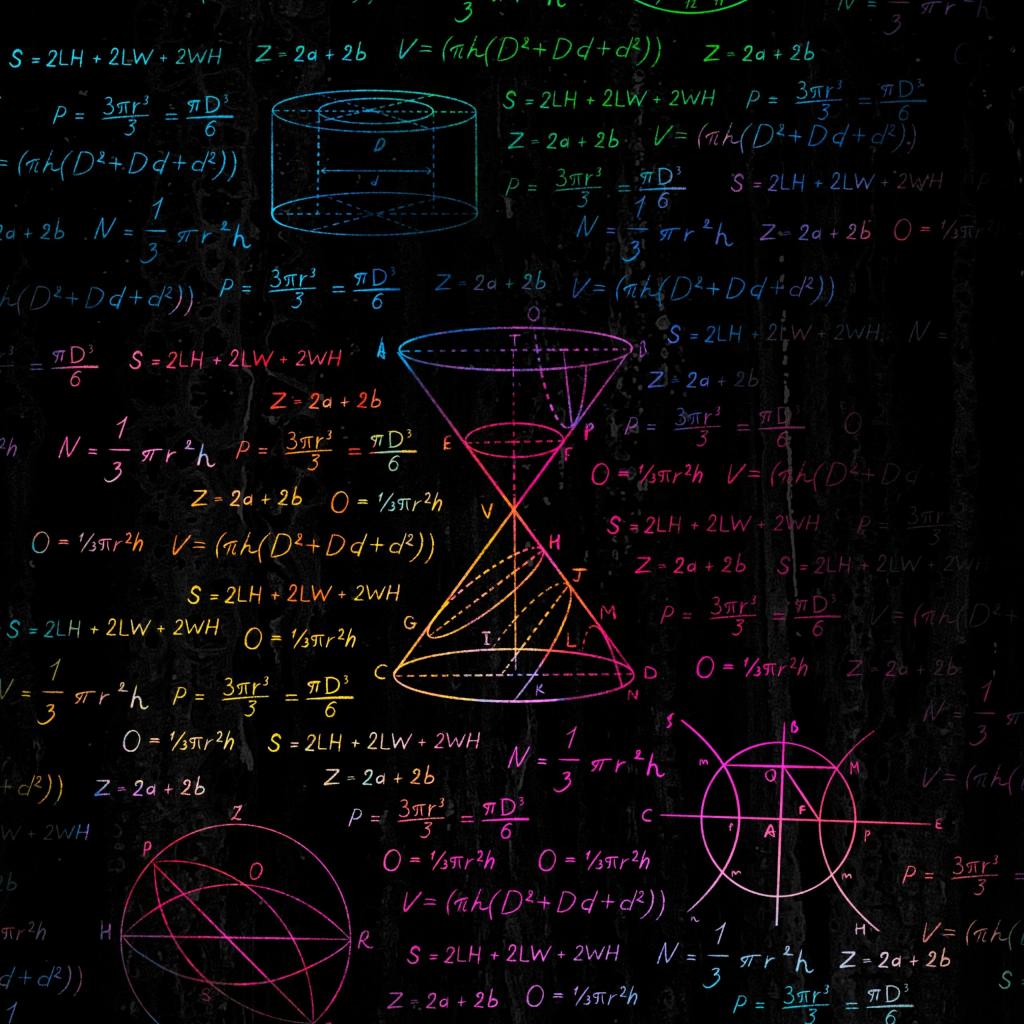 3
N = 1/3 πr²h
S = 2LH + 2LW + 2WH Z = 2a + 2b V = (πh(D² + Dd + d²)) Z = 2a + 2b
P = 3πr³/3 = πD³/6 S = 2LH + 2LW + 2WH P = 3πr³/3 = πD³/6
= (πh(D² + Dd + d²)) D Z = 2a + 2b V = (πh(D² + Dd + d²))
d P = 3πr³/3 = πD³/6 S = 2LH + 2LW + 2WH
2a + 2b N = 1/3 πr²h N = 1/3 πr²h Z = 2a + 2b O = ⅓πr
h(D² + Dd + d²)) P = 3πr³/3 = πD³/6 Z = 2a + 2b V = (πh(D² + Dd + d²))
O
T
A B S = 2LH + 2LW + 2WH N =
= πD³/6 S = 2LH + 2LW + 2WH Z = 2a + 2b
Z = 2a + 2b
²h N = 1/3 πr²h P = 3πr³/3 = πD³/6 E F P P = 3πr³/3 = πD³/6 O
O = ⅓πr²h V = (πh(D² + Dd
Z = 2a + 2b O = ⅓πr²h V S = 2LH + 2LW + 2WH P = 3πr
O = ⅓πr²h V = (πh(D² + Dd + d²)) H Z = 2a + 2b S = 2LH + 2LW + 2WH
S = 2LH + 2LW + 2WH J
G M P = 3πr³/3 = πD³/6 V = (πh(D² +
S = 2LH + 2LW + 2WH O = ⅓πr²h I L
C D O = ⅓πr²h Z = 2a + 2b
V = 1/3 πr²h P = 3πr³/3 = πD³/6 K N N = 1/3 π
O = ⅓πr²h S = 2LH + 2LW + 2WH
N = 1/3 πr²h
S B
m Q M
+ d²)) Z = 2a + 2b Z = 2a + 2b V = (πh(
P = 3πr³/3 = πD³/6
W + 2WH Z C A F P E
P O O = ⅓πr²h O = ⅓πr²h m m P = 3πr³/3 =
2b V = (πh(D² + Dd + d²))
πr²h H R H V = (πh(
S = 2LH + 2LW + 2WH N = 1/3 πr²h Z = 2a + 2b
d + d²)) S S =
Z = 2a + 2b O = ⅓πr²h P = 3πr³/3 = πD³/6
1